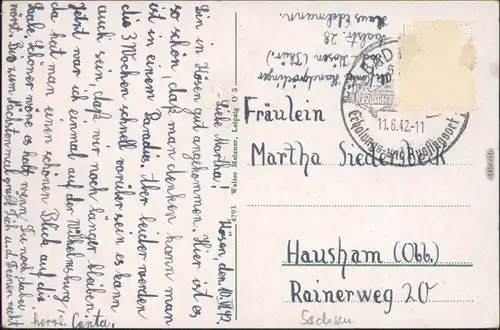 Kösen, den 10.VI.42.
Liebe Martha!
Bin in Kösen gut angekommen. Hier ist es
so schön, daß man denken kann man
ist in einem Paradies. Aber leider werden
die 3 Wochen schnell vorüber sein es kann
auch sein, daß wir noch länger bleiben.
Jetzt war ich einmal auf der Wilhelmsburg
da hat man einen schönen Blick auf die
Saale. Schöner wäre es halt wenn Du noch dabei
wärst. Bis zum nächstenmal grüßt Dich u.
herzl. Centa.
4791 Walter Heinze, Leipzig O 5
Kösen (Thür.)
Saalstr. 28
Haus
BAD
11.6.42-11
Erholungs- und Ausflugsort
Fräulein
Martha Siederbeck
Hausham (Obb.)
Rainerweg 20
Sachsen